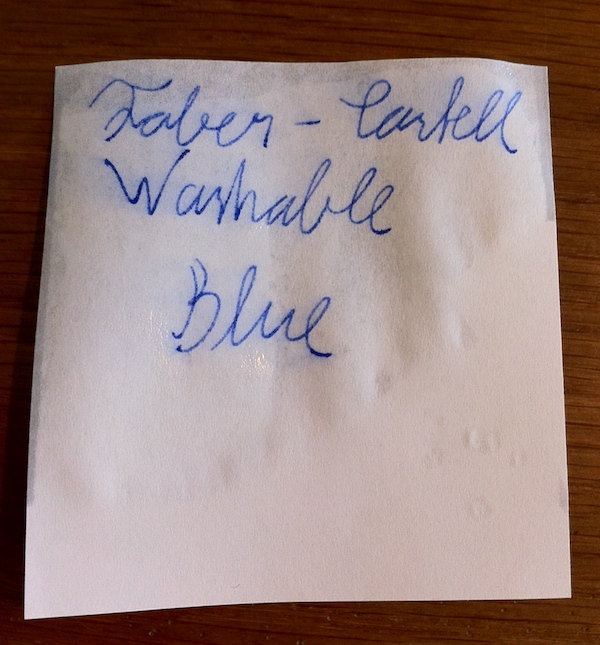 Faber - Castell
Washable
Blue